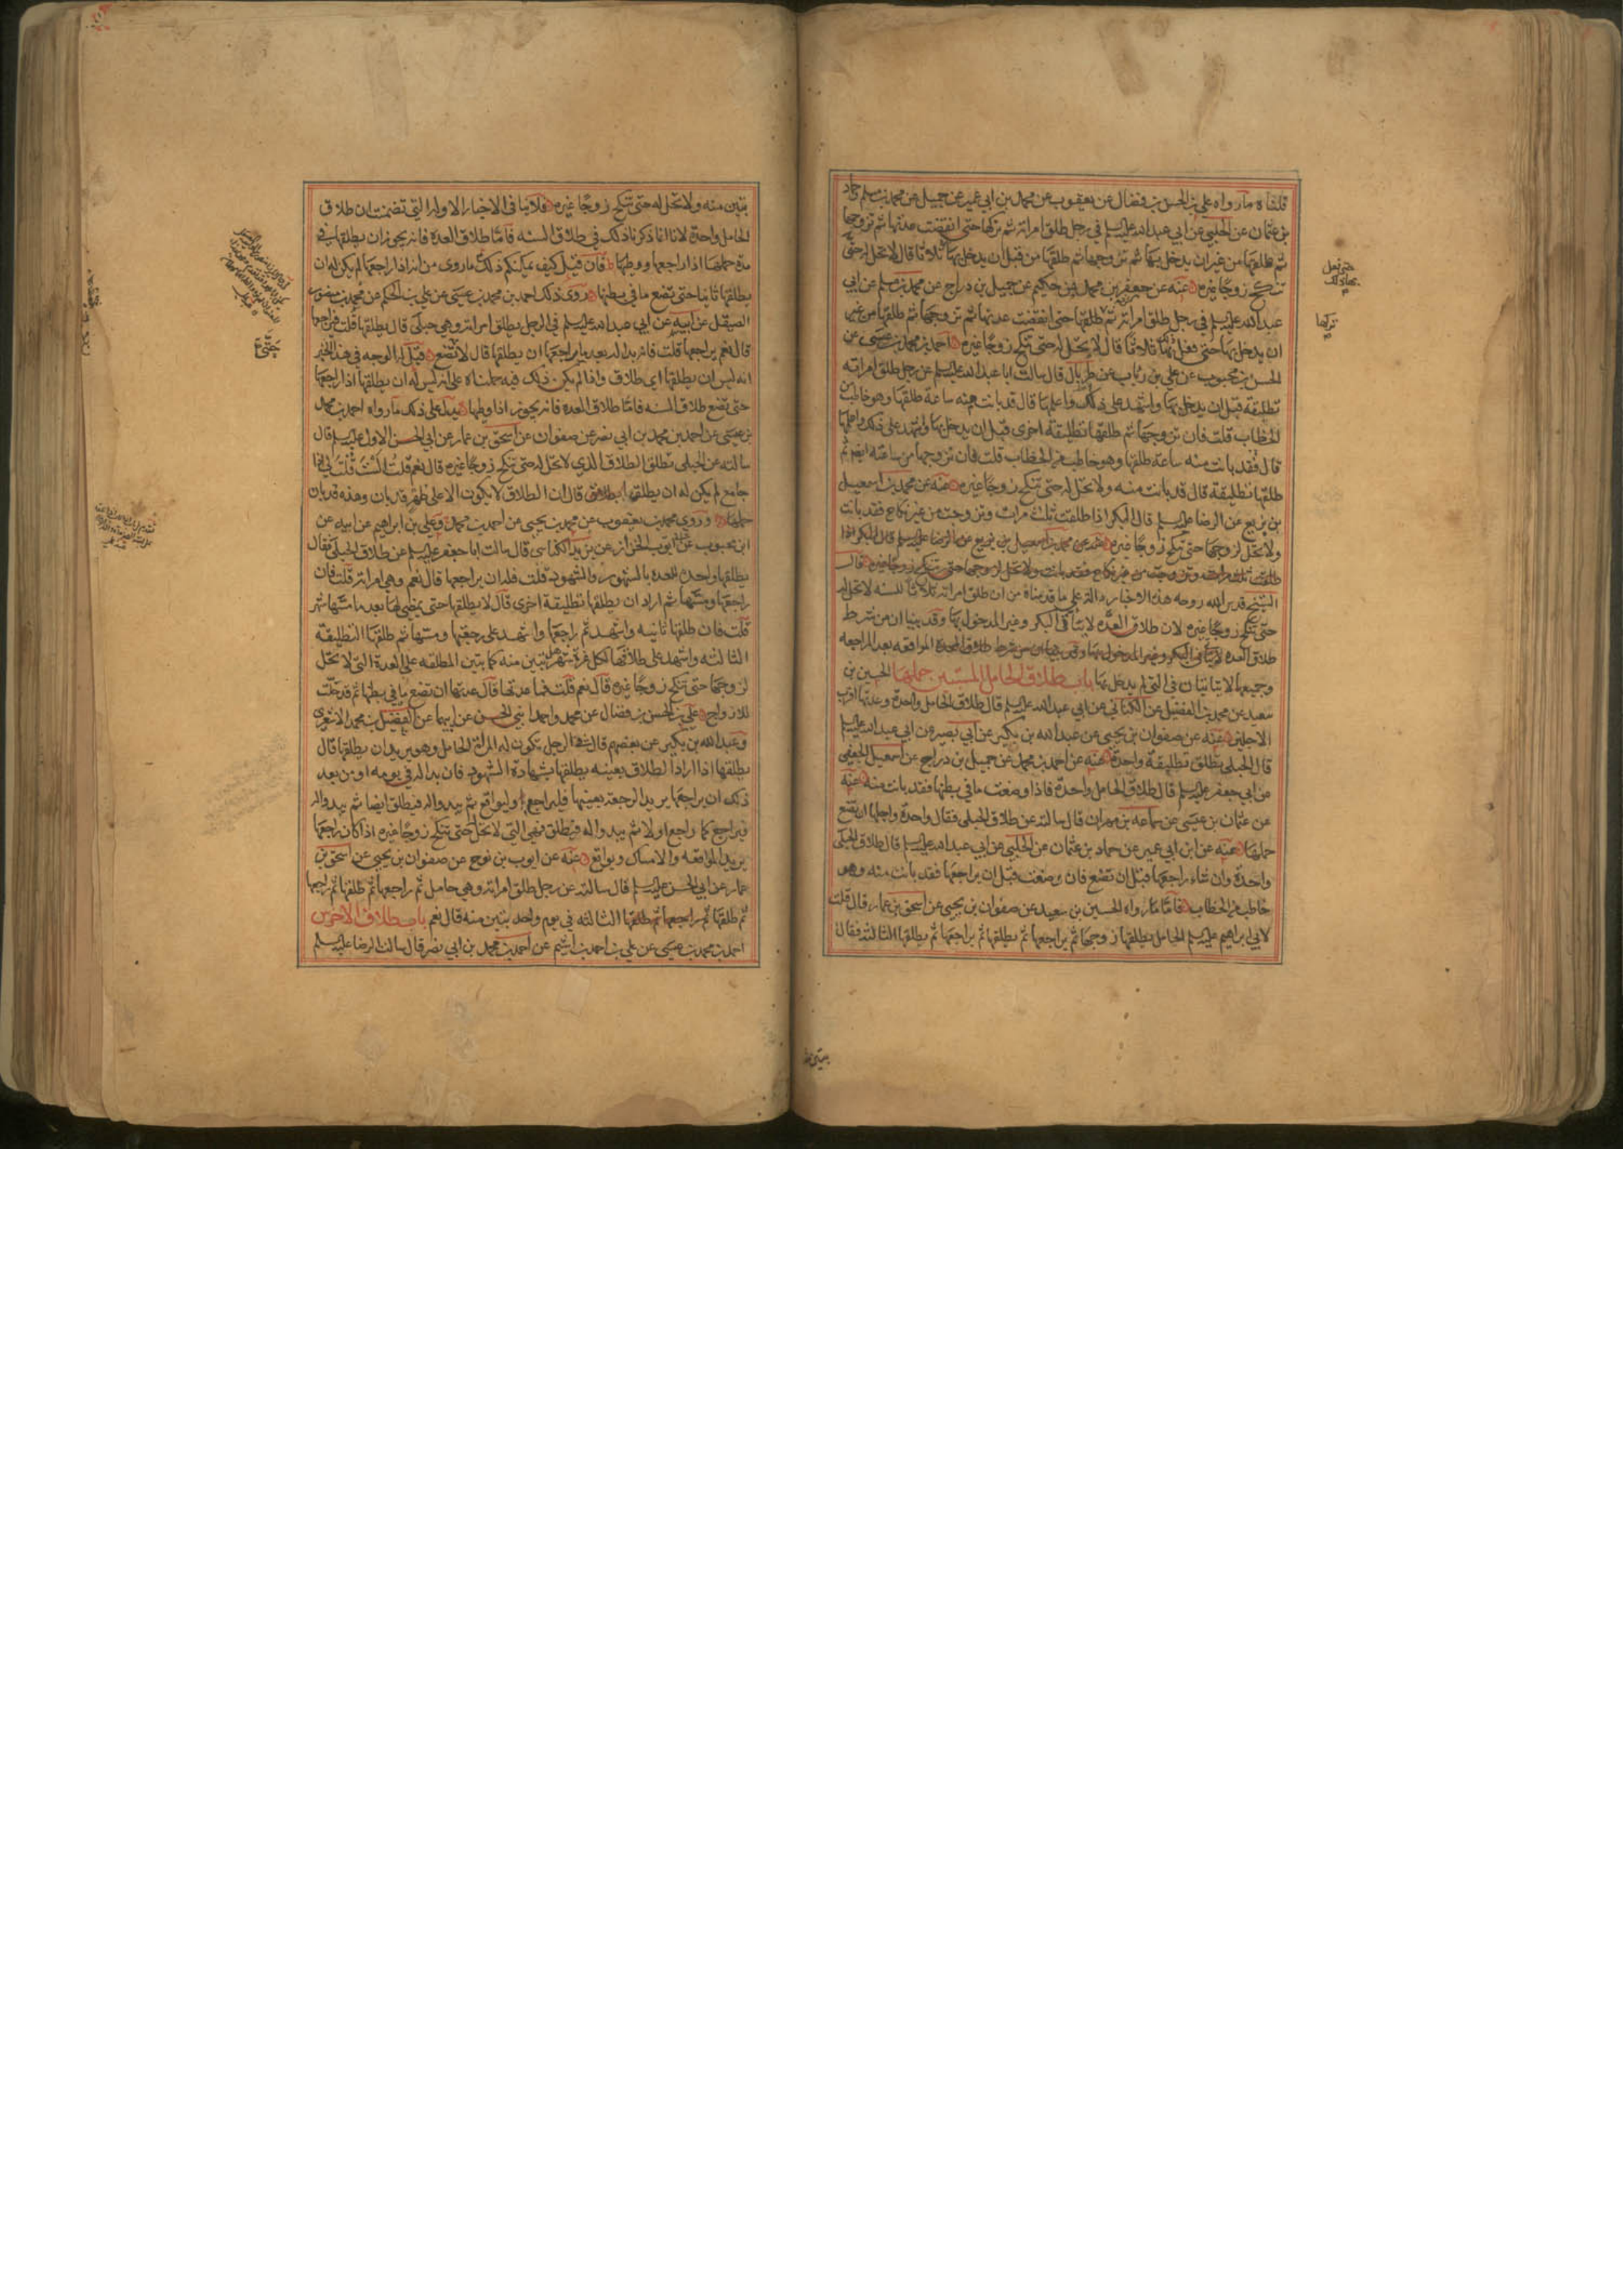 قلناه مارواه علي بن الحسن بن فضال عن يعقوب عن محمد بن ابي عمير عن جميل عن محمد بن مسلم وحماد
بن عثمان عن الحلبي عن ابي عبد الله عليه السلم في رجل طلق امراته ثم تركها حتى انقضت عدتها ثم تزوجها
ثم طلقها من غير ان يدخل بها ثم تزوجها ثم طلقها من قبل ان يدخل بها ثلاثا قال لا تحل له حتى
تنكح زوجا غيره عنه عن جعفر بن محمد بن حكيم عن جميل بن دراج عن محمد بن مسلم عن ابي
عبد الله عليه السلم في رجل طلق امراته ثم طلقها حتى انقضت عدتها ثم تزوجها ثم طلقها من غير
ان يدخل بها حتى فعل بها ثلاثا قال لا يحل له حتى تنكح زوجا غيره احمد بن محمد بن عيسى عن
الحسن بن محبوب عن علي بن رئاب عن طربال قال سالت ابا عبد الله عليه السلم عن رجل طلق امراته
تطليقة قبل ان يدخل بها واشهد على ذلك واعلمها قال قد بانت منه ساعة طلقها وهو خاطب من
الخطاب قلت فان تزوجها ثم طلقها تطليقة اخرى قبل ان يدخل بها واشهد على ذلك واعلمها
قال فقد بانت منه ساعة طلقها وهو خاطب من الخطاب قلت فان تزوجها من ساعته ايضا ثم
طلقها تطليقة قال قد بانت منه ولا تحل له حتى تنكح زوجا غيره عنه عن محمد بن اسمعيل
بن بزيع عن الرضا عليه السلم قال البكر اذا طلقت ثلث مرات وتزوجت من غير نكاح فقد بانت
ولا تحل لزوجها حتى تنكح زوجا غيره عنه عن محمد بن اسمعيل بن بزيع عن الرضا عليه السلم قال البكر اذا
طلقت ثلث مرات وتزوجت من غير نكاح فقد بانت ولا تحل لزوجها حتى تنكح زوجا غيره قال
الشيخ قدس الله روحه هذه الاخبار دالة على ما قدمناه من ان طلق امراته ثلاثا للسنه لا تحل له
حتى تنكح زوجا غيره لان طلاق العدة لا يتاتى في البكر وغير المدخول بها وقد بينا ان من شرط
طلاق العدة لا يتاتى في البكر وغير المدخول بها وقد بينا ان من شرط طلاق العدة المواقعه بعد المراجعه
وجميعها لا يتاتيان في التي لم يدخل بها باب طلاق الحامل المستبين حملها الحسين بن
سعيد عن محمد بن الفضيل عن الكناني عن ابي عبد الله عليه السلم قال طلاق الحامل واحدة وعدتها اقرب
الاجلين عنه عن صفوان بن يحيى عن عبد الله بن بكير عن ابي بصير عن ابي عبد الله عليه السلم
قال الحبلى يطلق تطليقة واحدة عنه عن احمد بن محمد عن جميل بن دراج عن اسمعيل الجعفي
عن ابي جعفر عليه السلم قال طلاق الحامل واحدة فاذا وضعت ما في بطنها فقد بانت منه عنه
عن عثمان بن عيسى عن سماعه بن مهران قال سالته عن طلاق الحبلى فقال واحدة واجلها ان تضع
حملها عنه عن ابن ابي عمير عن حماد بن عثمان عن الحلبي عن ابي عبد الله عليه السلم قال طلاق الحبلى
واحدة وان شاء راجعها قبل ان تضع فان وضعت قبل ان يراجعها فقد بانت منه وهو
خاطب من الخطاب فاما ما رواه الحسين بن سعيد عن صفوان بن يحيى عن اسحق بن عمار قال قلت
لابي ابراهيم عليه السلم الحامل يطلقها زوجها ثم يراجعها ثم يطلقها ثم يراجعها ثم يطلقها الثالثة فقال
تركها
تبين منه ولا تحل له حتى تنكح زوجا غيره فلا ينافي الاخبار الاوله التي تضمنت ان طلاق
الحامل واحدة لانا انما ذكرنا ذلك في طلاق السنه فاما طلاق العدة فانه يجوز ان يطلقها في
مدة حملها اذا راجعها ووطيها فان قيل كيف يمكنكم ذلك مع ما روى من انه اذا راجعها لم يكن له ان
يطلقها ثانيا حتى تضع ما في بطنها روى ذلك احمد بن محمد بن عيسى عن علي بن الحكم عن محمد بن منصور
الصيقل عن ابيه عن ابي عبد الله عليه السلم في الرجل يطلق امراته وهي حبلى قال يطلقها قلت فيراجعها
قال نعم يراجعها قلت فانه بدا له بعد ما راجعها ان يطلقها قال لا حتى تضع قيل له الوجه في هذا الخبر
انه ليس ان يطلقها اي طلاق واذا لم يكن ذلك فيه حملناه على انه ليس له ان يطلقها اذا راجعها
حتى تضع طلاق السنه فاما طلاق العدة فانه يجوز اذا وطيها يدل على ذلك ما رواه احمد بن محمد
بن عيسى عن احمد بن محمد بن ابي نصر عن صفوان عن اسحق بن عمار عن ابي الحسن الاول عليه السلم قال
سالته عن الحبلى تطلق الطلاق الذي لا تحل له حتى تنكح زوجا غيره قال نعم قلت الست قلت لي اذا
جامع لم يكن له ان يطلقها قال ان الطلاق لا يكون الا على طهر قد بان وهذه قد بان
حملها وروى محمد بن يعقوب عن محمد بن يحيى عن احمد بن محمد وعلي بن ابراهيم عن ابيه عن
ابن محبوب عن ابي ايوب الخزاز عن يزيد الكناسي قال سالت ابا جعفر عليه السلم عن طلاق الحبلى فقال
يطلقها واحدة للعدة بالشهور والشهود قلت فله ان يراجعها قال نعم وهي امراته قلت فان
راجعها ومسها ثم اراد ان يطلقها تطليقة اخرى قال لا يطلقها حتى يمضي لها بعد ما مسها شهر
قلت فان طلقها ثانيه واشهد ثم راجعها واشهد على رجعتها ومسها ثم طلقها التطليقة
الثالثه واشهد على طلاقها لكل غرة شهر هل تبين منه كما تبين المطلقه على العدة التي لا تحل
لزوجها حتى تنكح زوجا غيره قال نعم قلت فما عدتها قال عدتها ان تضع ما في بطنها ثم قد حلت
للازواج علي بن الحسن بن فضال عن محمد واحمد ابني الحسن عن ابيهما عن الفضيل بن محمد الاشعري
وعبد الله بن بكير عن بعضهم قال في الرجل تكون له المراة الحامل وهو يريد ان يطلقها قال
يطلقها اذا اراد الطلاق بعينه يطلقها بشهادة الشهود فان بدا له في يومه او من بعد
ذلك ان يراجعها يريد الرجعة بعينها فليراجع وليواقع ثم يبدو له فيطلق ايضا ثم يبدو له
فيراجع كما راجع اولا ثم يبدو له فيطلق فهي التي لا تحل له حتى تنكح زوجا غيره اذا كان راجعها
يريد المواقعه والامساك ويواقع عنه عن ايوب بن نوح عن صفوان بن يحيى عن اسحق بن
عمار عن ابي الحسن عليه السلم قال سالته عن رجل طلق امراته وهي حامل ثم راجعها ثم طلقها ثم راجعها
ثم طلقها ثم راجعها ثم طلقها الثالثه في يوم واحد تبين منه قال نعم باب طلاق الاخرس
احمد بن محمد بن عيسى عن علي بن احمد بن اشيم عن احمد بن محمد بن ابي نصر قال سالت الرضا عليه السلم